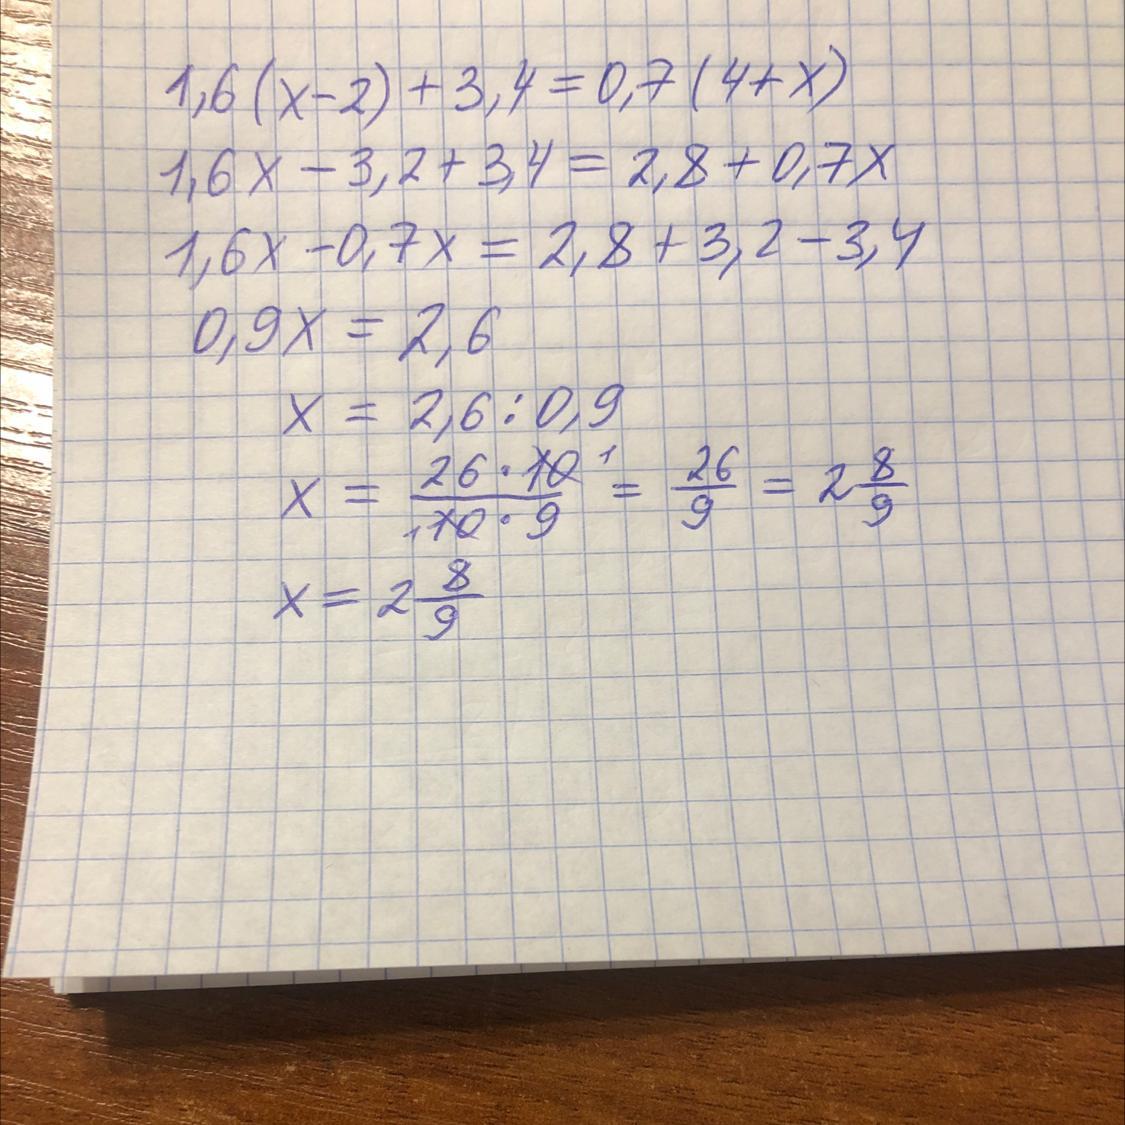 1,6(x-2)+3,4=0,7(4+x)
1,6x-3,2+3,4=2,8+0,7x
1,6x-0,7x=2,8+3,2-3,4
0,9x=2,6
x=2,6:0,9
x=26·10/10·9=26/9=2 8/9
x=2 8/9